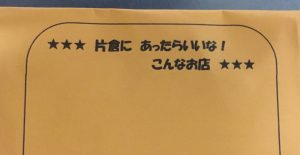 ★★★ 片倉に あったらいいな!
こんなお店 ★★★